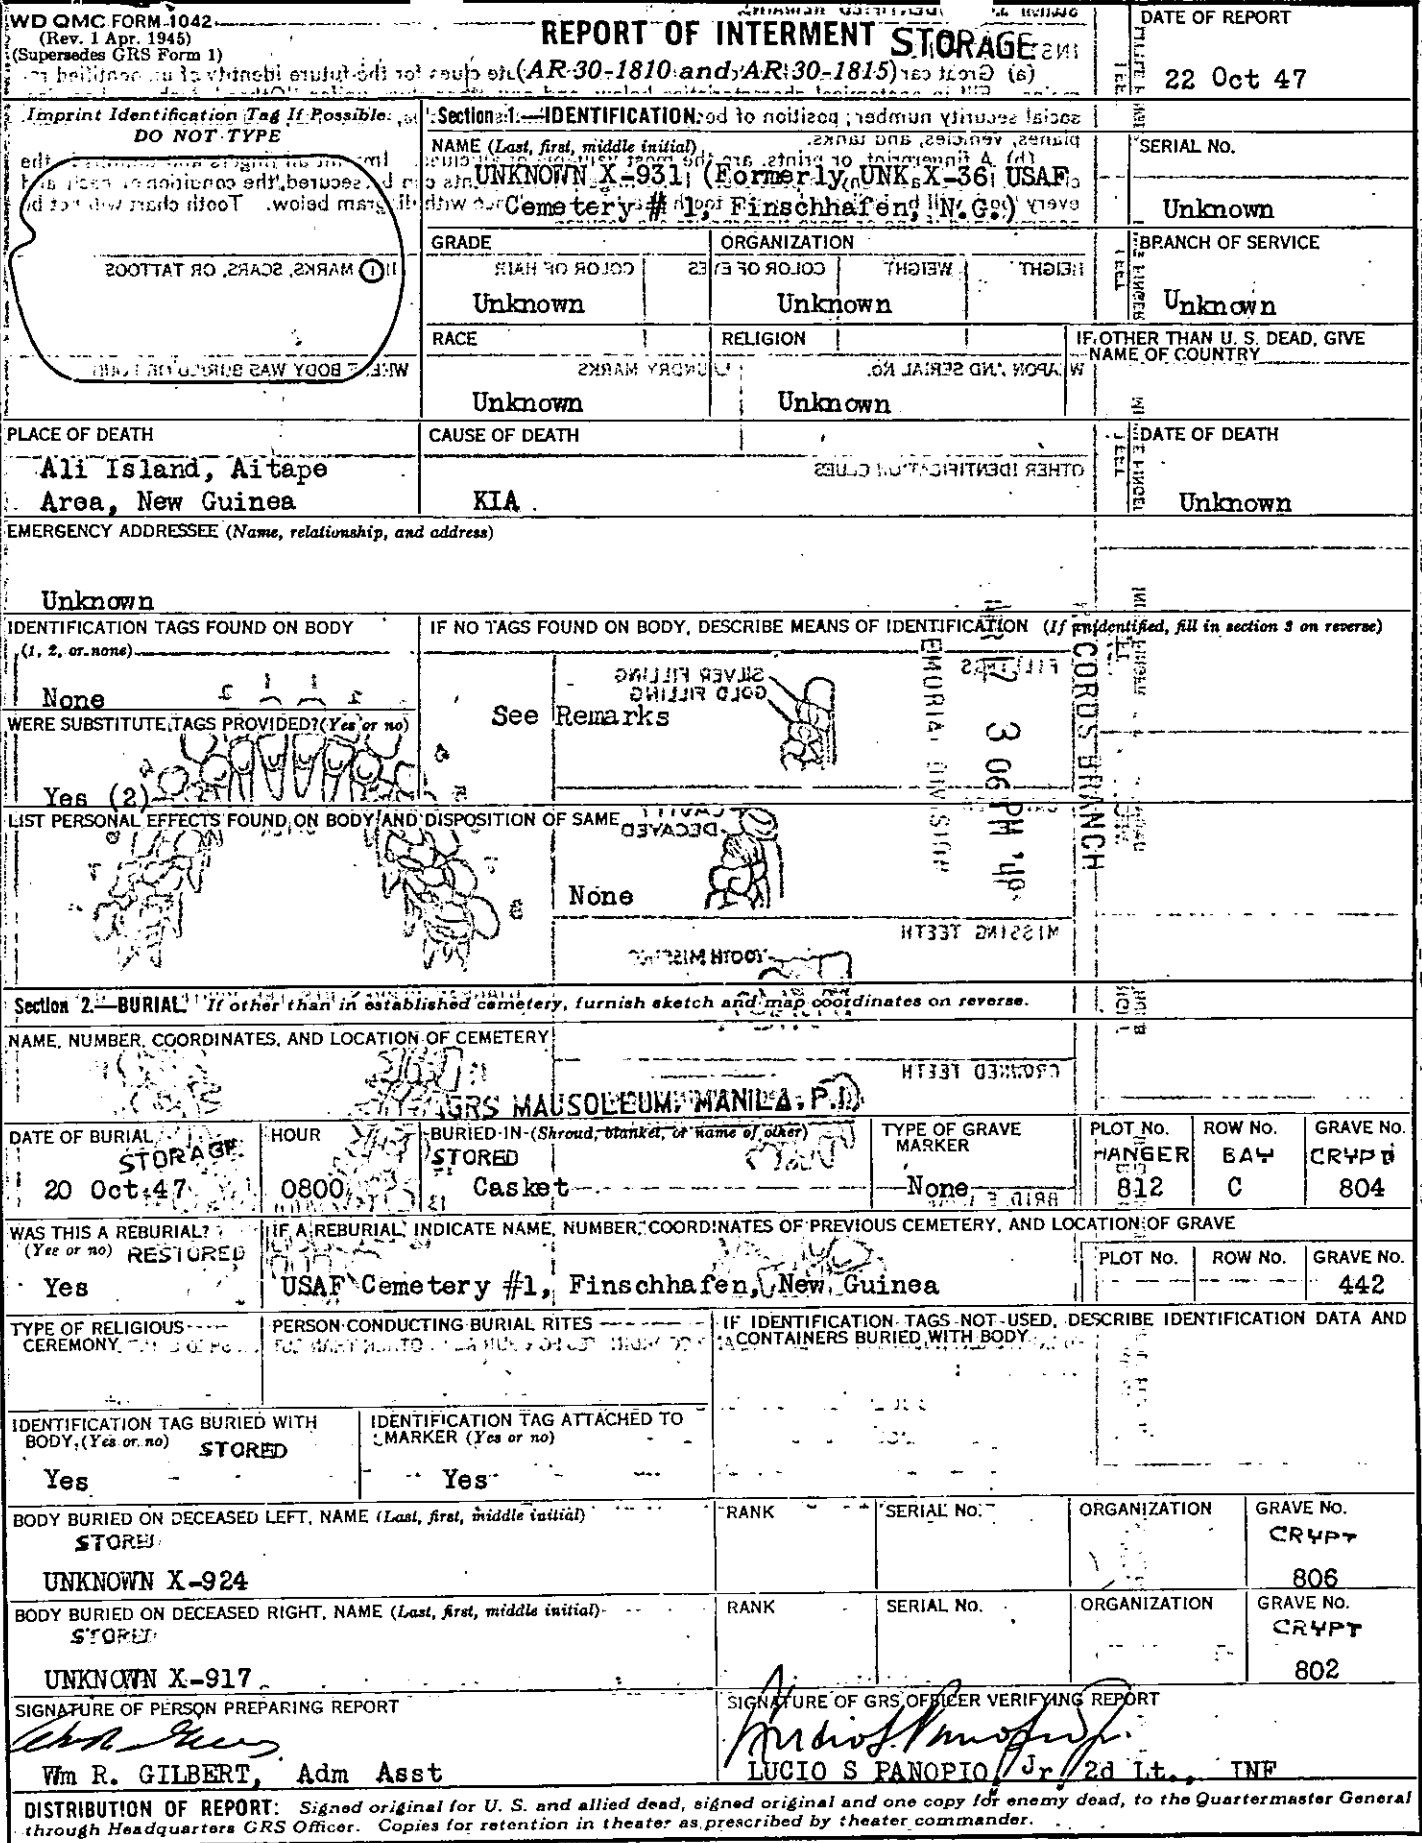 WD QMC FORM 1042
(Rev. 1 Apr. 1945)
(Supersedes GRS Form 1)
REPORT OF INTERMENT STORAGE
(AR 30-1810 and AR 30-1815)
DATE OF REPORT
22 Oct 47
Imprint Identification Tag If Possible
DO NOT TYPE
Section 1.—IDENTIFICATION
NAME (Last, first, middle initial)
UNKNOWN X-931 (Formerly UNK X-36 USAF
Cemetery # 1, Finschhafen, N.G.)
SERIAL No.
Unknown
GRADE
Unknown
ORGANIZATION
Unknown
BRANCH OF SERVICE
Unknown
RACE
Unknown
RELIGION
Unknown
IF OTHER THAN U. S. DEAD, GIVE
NAME OF COUNTRY
PLACE OF DEATH
Ali Island, Aitape
Area, New Guinea
CAUSE OF DEATH
KIA
DATE OF DEATH
Unknown
EMERGENCY ADDRESSEE (Name, relationship, and address)
Unknown
IDENTIFICATION TAGS FOUND ON BODY
(1, 2, or none)
None
IF NO TAGS FOUND ON BODY, DESCRIBE MEANS OF IDENTIFICATION (If unidentified, fill in section 3 on reverse)
See Remarks
WERE SUBSTITUTE TAGS PROVIDED? (Yes or no)
Yes (2)
LIST PERSONAL EFFECTS FOUND ON BODY AND DISPOSITION OF SAME
None
3 06 PM '48
Section 2.—BURIAL If other than in established cemetery, furnish sketch and map coordinates on reverse.
NAME, NUMBER, COORDINATES, AND LOCATION OF CEMETERY
GRS MAUSOLEUM, MANILA, P.I.
DATE OF BURIAL
STORAGE
20 Oct 47
HOUR
0800
BURIED IN (Shroud, blanket, or name of other)
STORED
Casket
TYPE OF GRAVE
MARKER
None
PLOT No.
HANGER
812
ROW No.
BAY
C
GRAVE No.
CRYPT
804
WAS THIS A REBURIAL?
(Yes or no) RESTORED
Yes
IF A REBURIAL, INDICATE NAME, NUMBER, COORDINATES OF PREVIOUS CEMETERY, AND LOCATION OF GRAVE
USAF Cemetery #1, Finschhafen, New Guinea
PLOT No.
ROW No.
GRAVE No.
442
TYPE OF RELIGIOUS
CEREMONY
PERSON CONDUCTING BURIAL RITES
IF IDENTIFICATION TAGS NOT USED, DESCRIBE IDENTIFICATION DATA AND
CONTAINERS BURIED WITH BODY
IDENTIFICATION TAG BURIED WITH
BODY (Yes or no) STORED
Yes
IDENTIFICATION TAG ATTACHED TO
MARKER (Yes or no)
Yes
BODY BURIED ON DECEASED LEFT, NAME (Last, first, middle initial)
STORED
UNKNOWN X-924
RANK
SERIAL No.
ORGANIZATION
GRAVE No.
CRYPT
806
BODY BURIED ON DECEASED RIGHT, NAME (Last, first, middle initial)
STORED
UNKNOWN X-917
RANK
SERIAL No.
ORGANIZATION
GRAVE No.
CRYPT
802
SIGNATURE OF PERSON PREPARING REPORT
Wm R. GILBERT, Adm Asst
SIGNATURE OF GRS OFFICER VERIFYING REPORT
LUCIO S PANOPIO, Jr 2d Lt., INF
DISTRIBUTION OF REPORT: Signed original for U. S. and allied dead, signed original and one copy for enemy dead, to the Quartermaster General
through Headquarters GRS Officer. Copies for retention in theater as prescribed by theater commander.